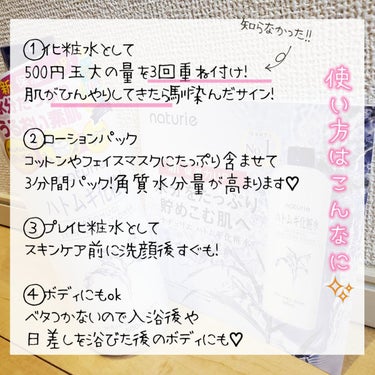 知らなかった!!
使い方はこんなに
①化粧水として
500円玉大の量を3回重ね付け!
肌がひんやりしてきたら馴染んだサイン!
②ローションパック
コットンやフェイスマスクにたっぷり含ませて
3分間パック!角質水分量が高まります♡
③プレ化粧水として
スキンケア前に洗顔後すぐも!
④ボディにもok
ベタつかないので入浴後や
日差しを浴びた後のボディにも♡
naturie
貯めこむ肌へ
ハトムギ化粧水